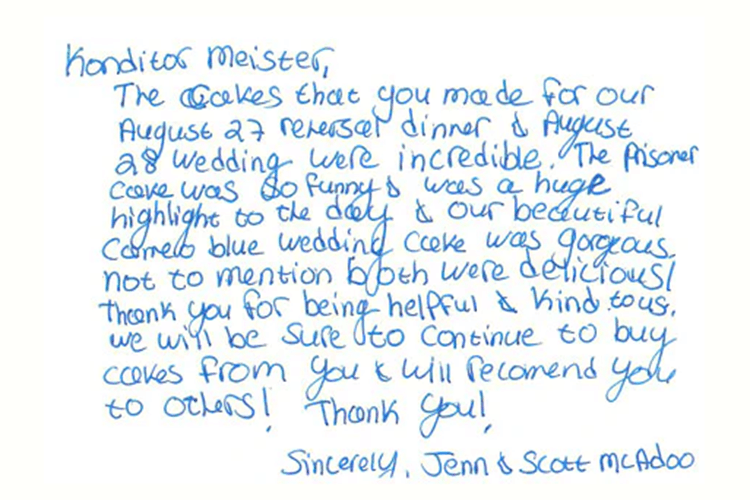 Konditor Meister,
The Cakes that you made for our
August 27 rehersal dinner & August
28 wedding were incredible. The prisoner
cake was so funny & was a huge
highlight to the day & our beautiful
Cameo blue wedding cake was gorgeous.
not to mention both were delicious!
Thank you for being helpful & kind to us.
we will be sure to continue to buy
cakes from you & will recomend you
to others! Thank you!
Sincerely, Jenn & Scott McAdoo